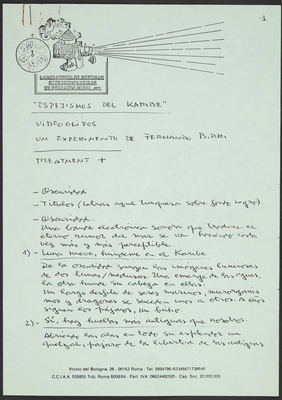 1
LABORATORIO DI POETICHE
CINEMATOGRAFICHE
DI FERNANDO BIRRI
"ESPEJISMOS DEL KARIBE"
VIDEOGLIFOS
UN EXPERIMENTO DE FERNANDO BIRRI
TREATMENT +
- Oscuridad
- Titulos (letras azul turquesa sobre fondo negro)
- Oscuridad.
Una banda electrónica sonora que traduce el
eterno rumor del mar se va haciendo cada
vez más y más perceptible.
1) - Luna nueva, en el Karibe
De la oscuridad surgen las imágenes luminosas
de dos lunas/medusas. Una emerge de las aguas,
la otra hunde su cabeza en ellas.
Un largo desfile de seres marinos, microorganis
mos y dragones se suceden unos a otros. A ellos
siguen los pájaros, un búho.
Sí, hay huellas más antiguas que nosotros.
2) - Abriendo las alas en todo su esplendor un
quetzal, pájaro de la libertad de los antiguos
Vicolo del Bologna, 26 - 00153 Roma - Tel.
C.C.I.A.A. 535855 Trib. Roma - Part. IVA - Cap. Soc. 20.000.000